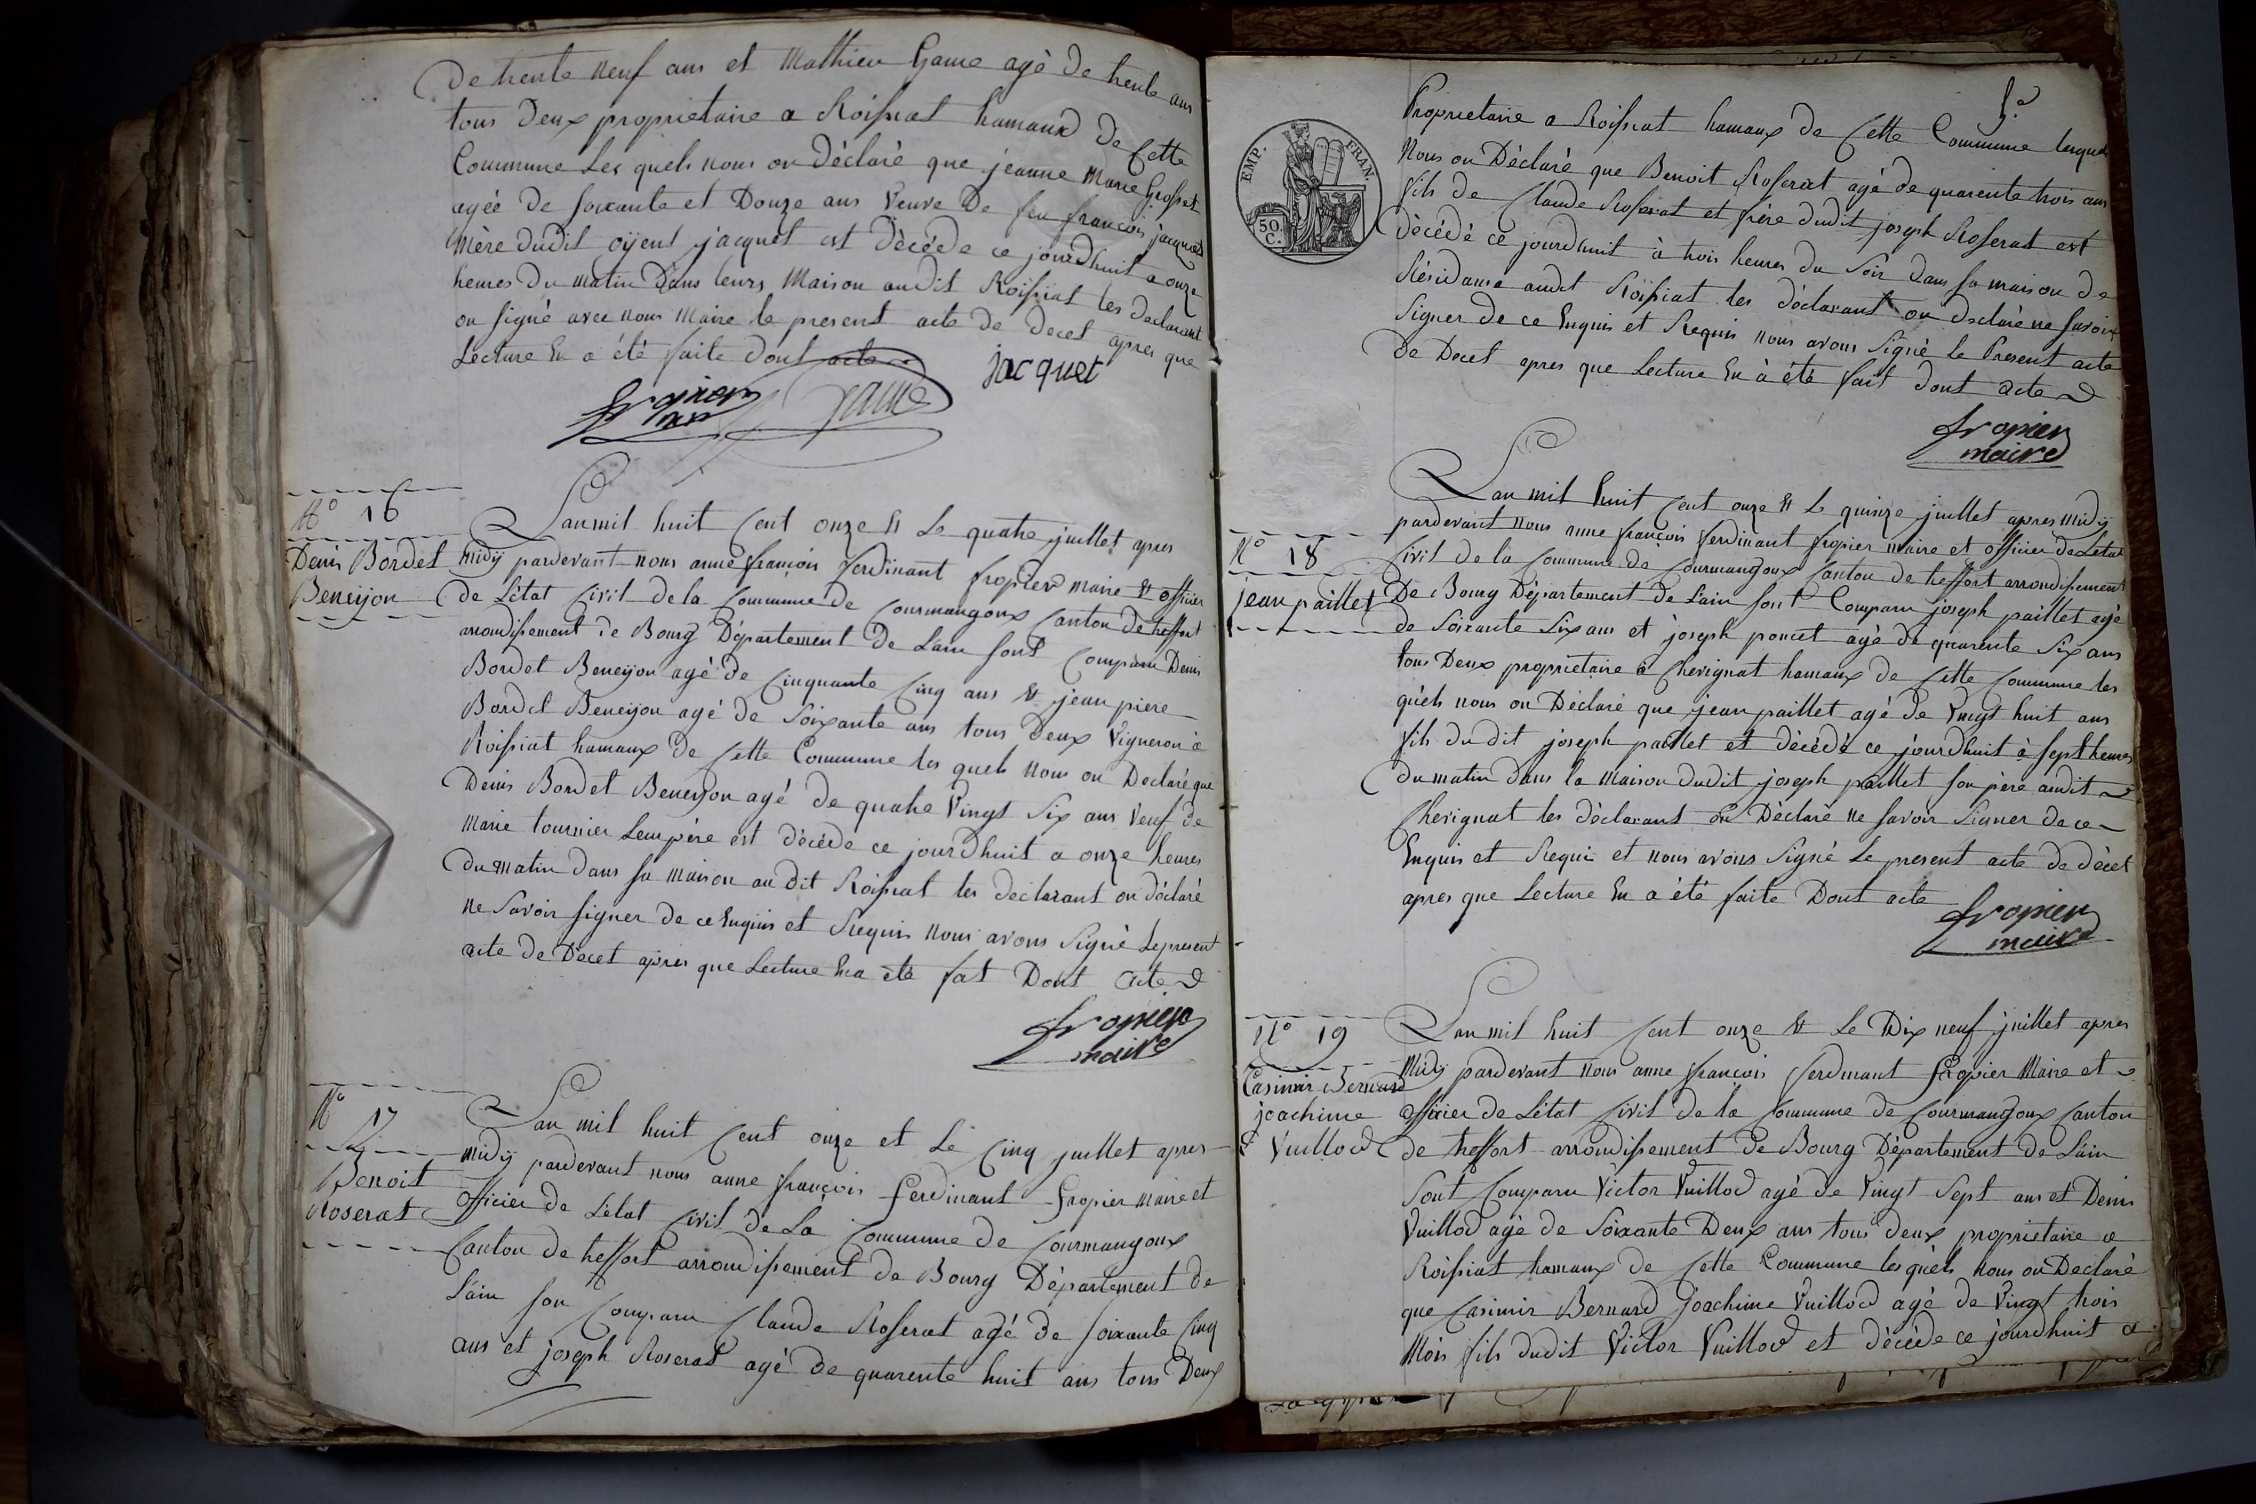 de trente neuf ans et Mathieu Game agé de trente ans
tous Deux proprietaire a Roissiat hamaux de Cette
Commune Les quels nous on Déclaré que jeanne Marie Grosset
agée de soixante et Douze ans Veuve De feu françois jacquet
Mère dudit oÿent jacquet est Décéde ce jourdhuit a onze
heures Du matin Dans leurs Maison audit Roissiat les Declarant
on signé avec nous Maire le present acte de Decet apres que
Lecture En a été faite dont acte
jacquet
fropier
mair
Game
N° 16
Denis Bordet
Beneijon
Lan mil huit Cent onze Et Le quatre juillet apres
Midÿ pardevant nous anne françois ferdinant fropier maire Et officier
de Létat Civil de la Commune de Courmangoux Canton de treffort
arrondissement de Bourg Département de Lain sont Comparu Denis
Bordet Beneijon agé de Cinquante Cinq ans Et jean piere
Bordet Beneijon agé de Soixante ans tous Deux Vigneron à
Roissiat hamaux de Cette Commune les quels nous on Declaré que
Denis Bordet Beneijon agé de quatre Vingt Six ans Veuf de
Marie tournier Leur père est décéde ce jourdhuit a onze heures
du matin dans sa maison au dit Roissiat les declarant on déclaré
ne Savoir signer de ce Enquis et Requis nous avons Signé Le present
acte de Decet apres que Lecture En a été fat Dont acte
fropier
maire
N° 17
Benoit
Roserat
Lan mil huit Cent onze et Le Cinq juillet apres
midÿ pardevant nous anne françois ferdinant fropier maire et
officier de Létat Civil de La Commune de Courmangoux
Canton de treffort arrondissement de Bourg Département de
Lain son Comparu Claude Roserat agé de soixante Cinq
ans et joseph Roserat agé de quarente huit ans tous Deux
EMP. FRAN.
50 C.
Proprietaire a Roissiat hamaux de Cette Commune lesquel
Nous on Déclaré que Benoit Roserat agé de quarente trois ans
fils de Claude Roserat et frère dudit joseph Roserat est
décédé ce jourdhuit à trois heures du Soir dans sa maison de
Résidanse audit Roissiat les déclarant on déclaré ne savoir
Signer de ce Enquis et Requis nous avons Signé le Present acte
de Decet apres que Lecture En à été fait dont acte
fropier
maire
N° 18
jean paillet
Lan mil huit Cent onze Et Le quinze juillet apres Midÿ
pardevant nous anne françois ferdinant fropier maire et officier de Létat
Civil de la Commune de Courmangoux Canton de treffort arrondissement
De Bourg Département de Lain sont Comparu joseph paillet agé
de Soixante Six ans et joseph poncet agé de quarente Six ans
tous Deux proprietaire à Chevignat hamaux de Cette Commune les
quels nous on Déclaré que jean paillet agé de Vingt huit ans
fils du dit joseph paillet et décédé ce jourdhuit à sept heures
du matin dans la maison dudit joseph paillet son père audit
Chevignat les déclarant on Déclaré ne savoir Signer de ce
Enquis et Requis et nous avons Signé Le present acte de décet
apres que Lecture En a été faite Dont acte
fropier
maire
N° 19
Casimir Bernard
joachime
Vuillod
Lan mil huit Cent onze Et Le Dix neuf juillet apres
Midÿ pardevant nous anne françois ferdinant fropier Maire et
officier de Létat Civil de la Commune de Courmangoux Canton
de treffort arrondissement de Bourg Département de Lain
Sont Comparu Victor Vuillod agé de Vingt Sept ans et Denis
Vuillod agé de Soixante Deux ans tous deux proprietaire a
Roissiat hamaux de Cette Commune les quels nous on Declaré
que Casimir Bernard Joachime Vuillod agé de Vingt trois
Mois fils dudit Victor Vuillod et décéde ce jourdhuit a